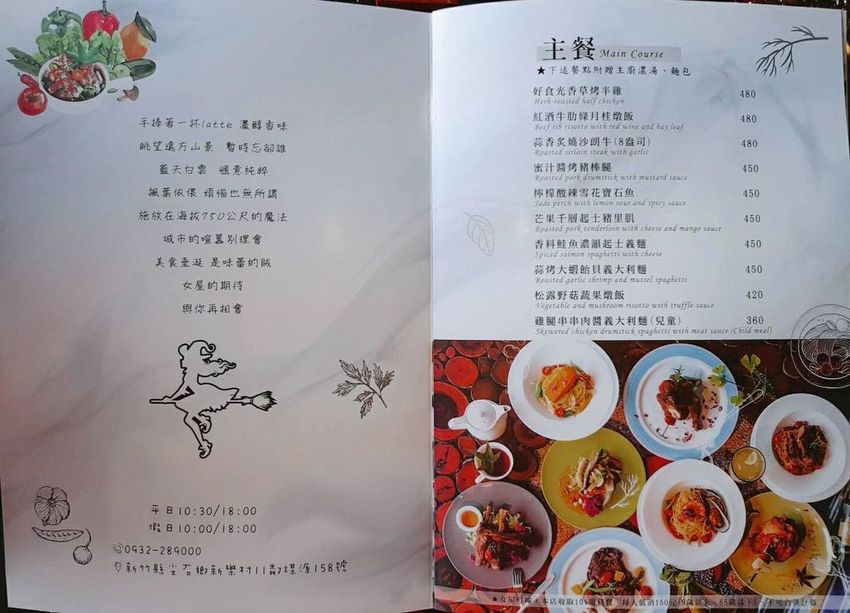 手捧著一杯latte 濃醇香味
眺望遠方山景 暫時忘卻誰
藍天白雲 愜意純粹
楓葉依偎 煩惱也無所謂
施放在海拔750公尺的魔法
城市的喧囂別理會
美食垂涎 是味蕾的賊
女屋的期待
與你再相會
平日10:30/18:00
假日10:00/18:00
0932-289000
新竹縣尖石鄉新樂村11鄰煤源158號
主餐 Main Course
★下述餐點附贈主廚濃湯、麵包
好食光香草烤半雞 480
Herb-roasted half chicken
紅酒牛肋條月桂燉飯 480
Beef rib risotto with red wine and bay leaf
蒜香炙燒沙朗牛(8盎司) 480
Roasted sirloin steak with garlic
蜜汁醬烤豬棒腿 450
Roasted pork drumstick with mustard sauce
檸檬酸辣雪花寶石魚 450
Jade perch with lemon sour and spicy sauce
芒果千層起士豬里肌 450
Roasted pork tenderloin with cheese and mango sauce
香料鮭魚濃韻起士義麵 450
Spiced salmon spaghetti with cheese
蒜烤大蝦飴貝義大利麵 450
Roasted garlic shrimp and mussel spaghetti
松露野菇蔬果燉飯 420
Vegetable and mushroom risotto with truffle sauce
雞腿串串肉醬義大利麵(兒童) 360
Skewered chicken drumstick spaghetti with meat sauce (Child meal)